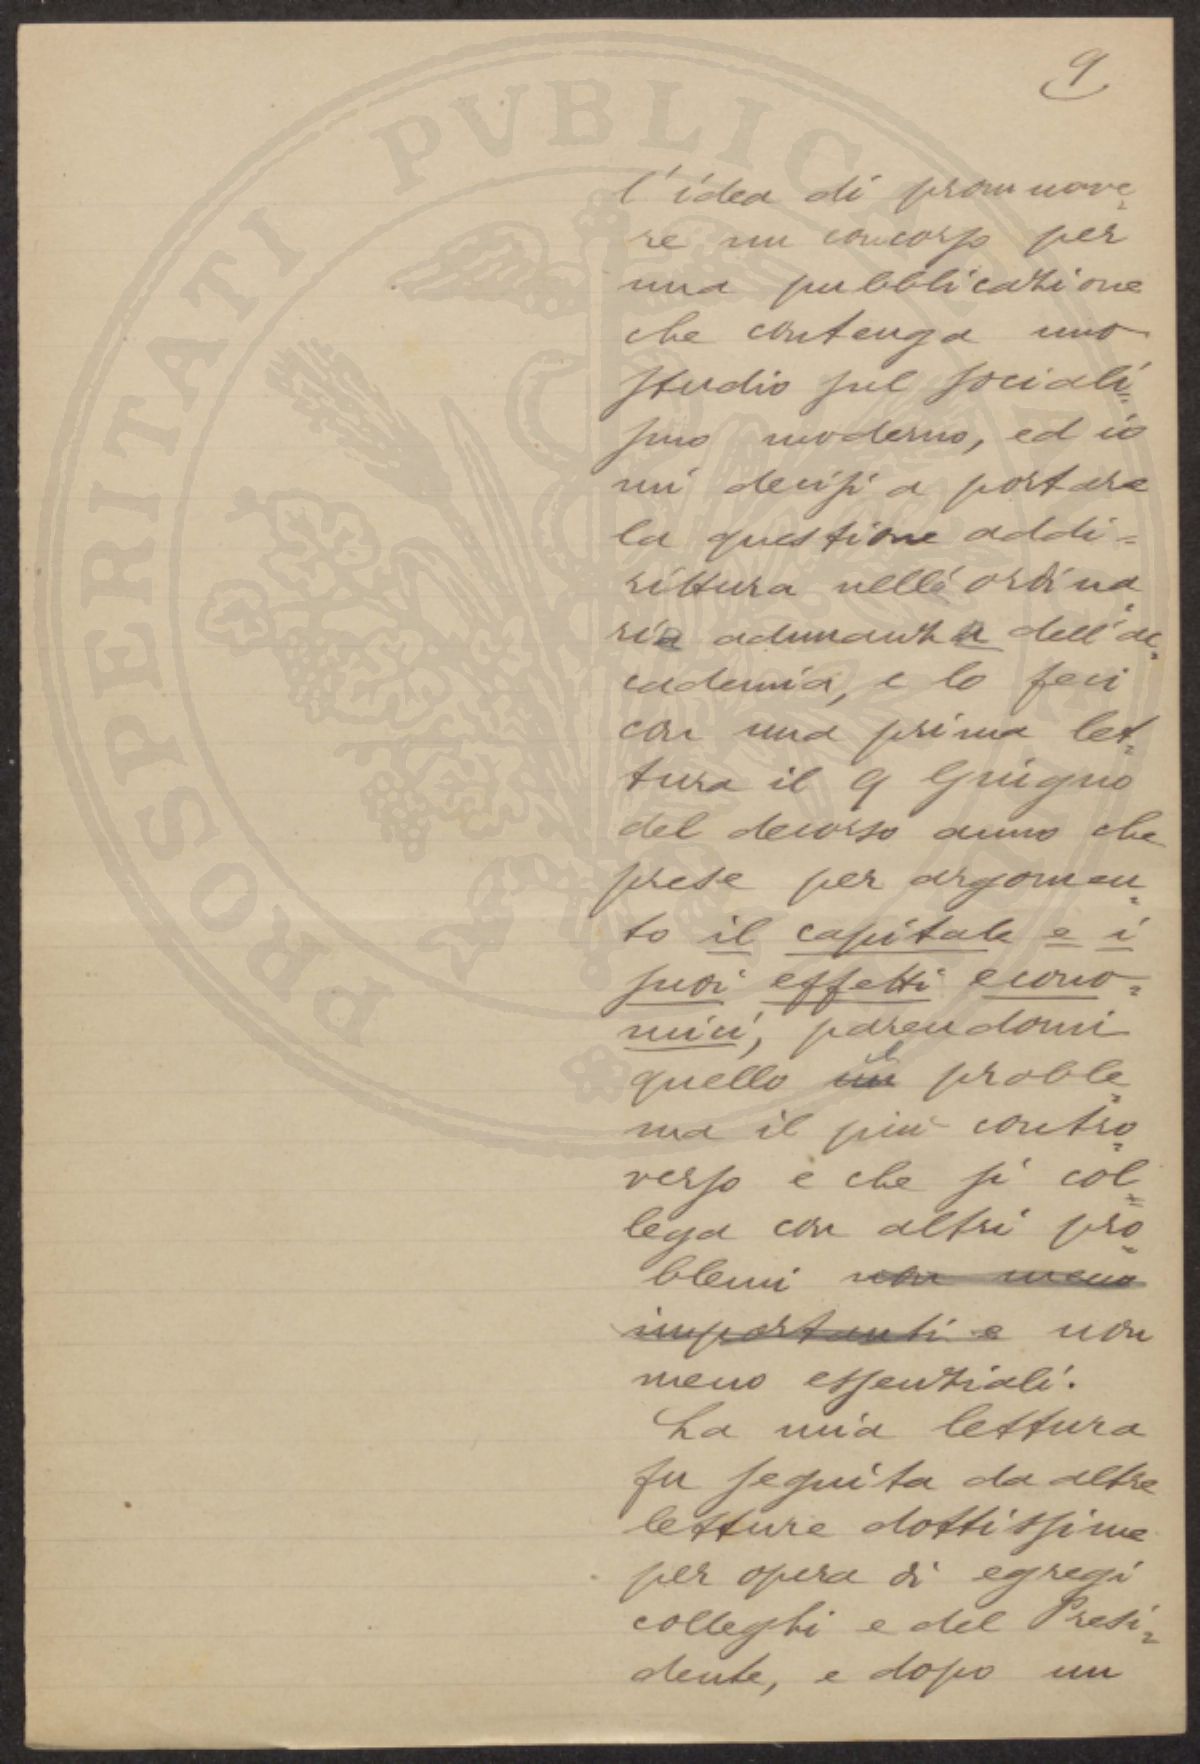 9
PROSPERITATI PVBLICAE
l'idea di promuove=
re un concorso per
una pubblicazione
che contenga uno
studio sul sociali=
smo moderno, ed io
mi decisi a portare
la questione addi=
rittura nell'ordina=
ria adunanza dell'ac=
cademia, e lo feci
con una prima let=
tura il 9 Giugno
del decorso anno che
prese per argomen=
to il capitale e i
suoi effetti econo=
mici, parendomi
quello un proble=
ma il più contro=
verso e che si col=
lega con altri pro=
blemi non meno
importanti e non
meno essenziali.
La mia lettura
fu seguita da altre
letture dottissime
per opera di egregi
colleghi e del Presi=
dente, e dopo un